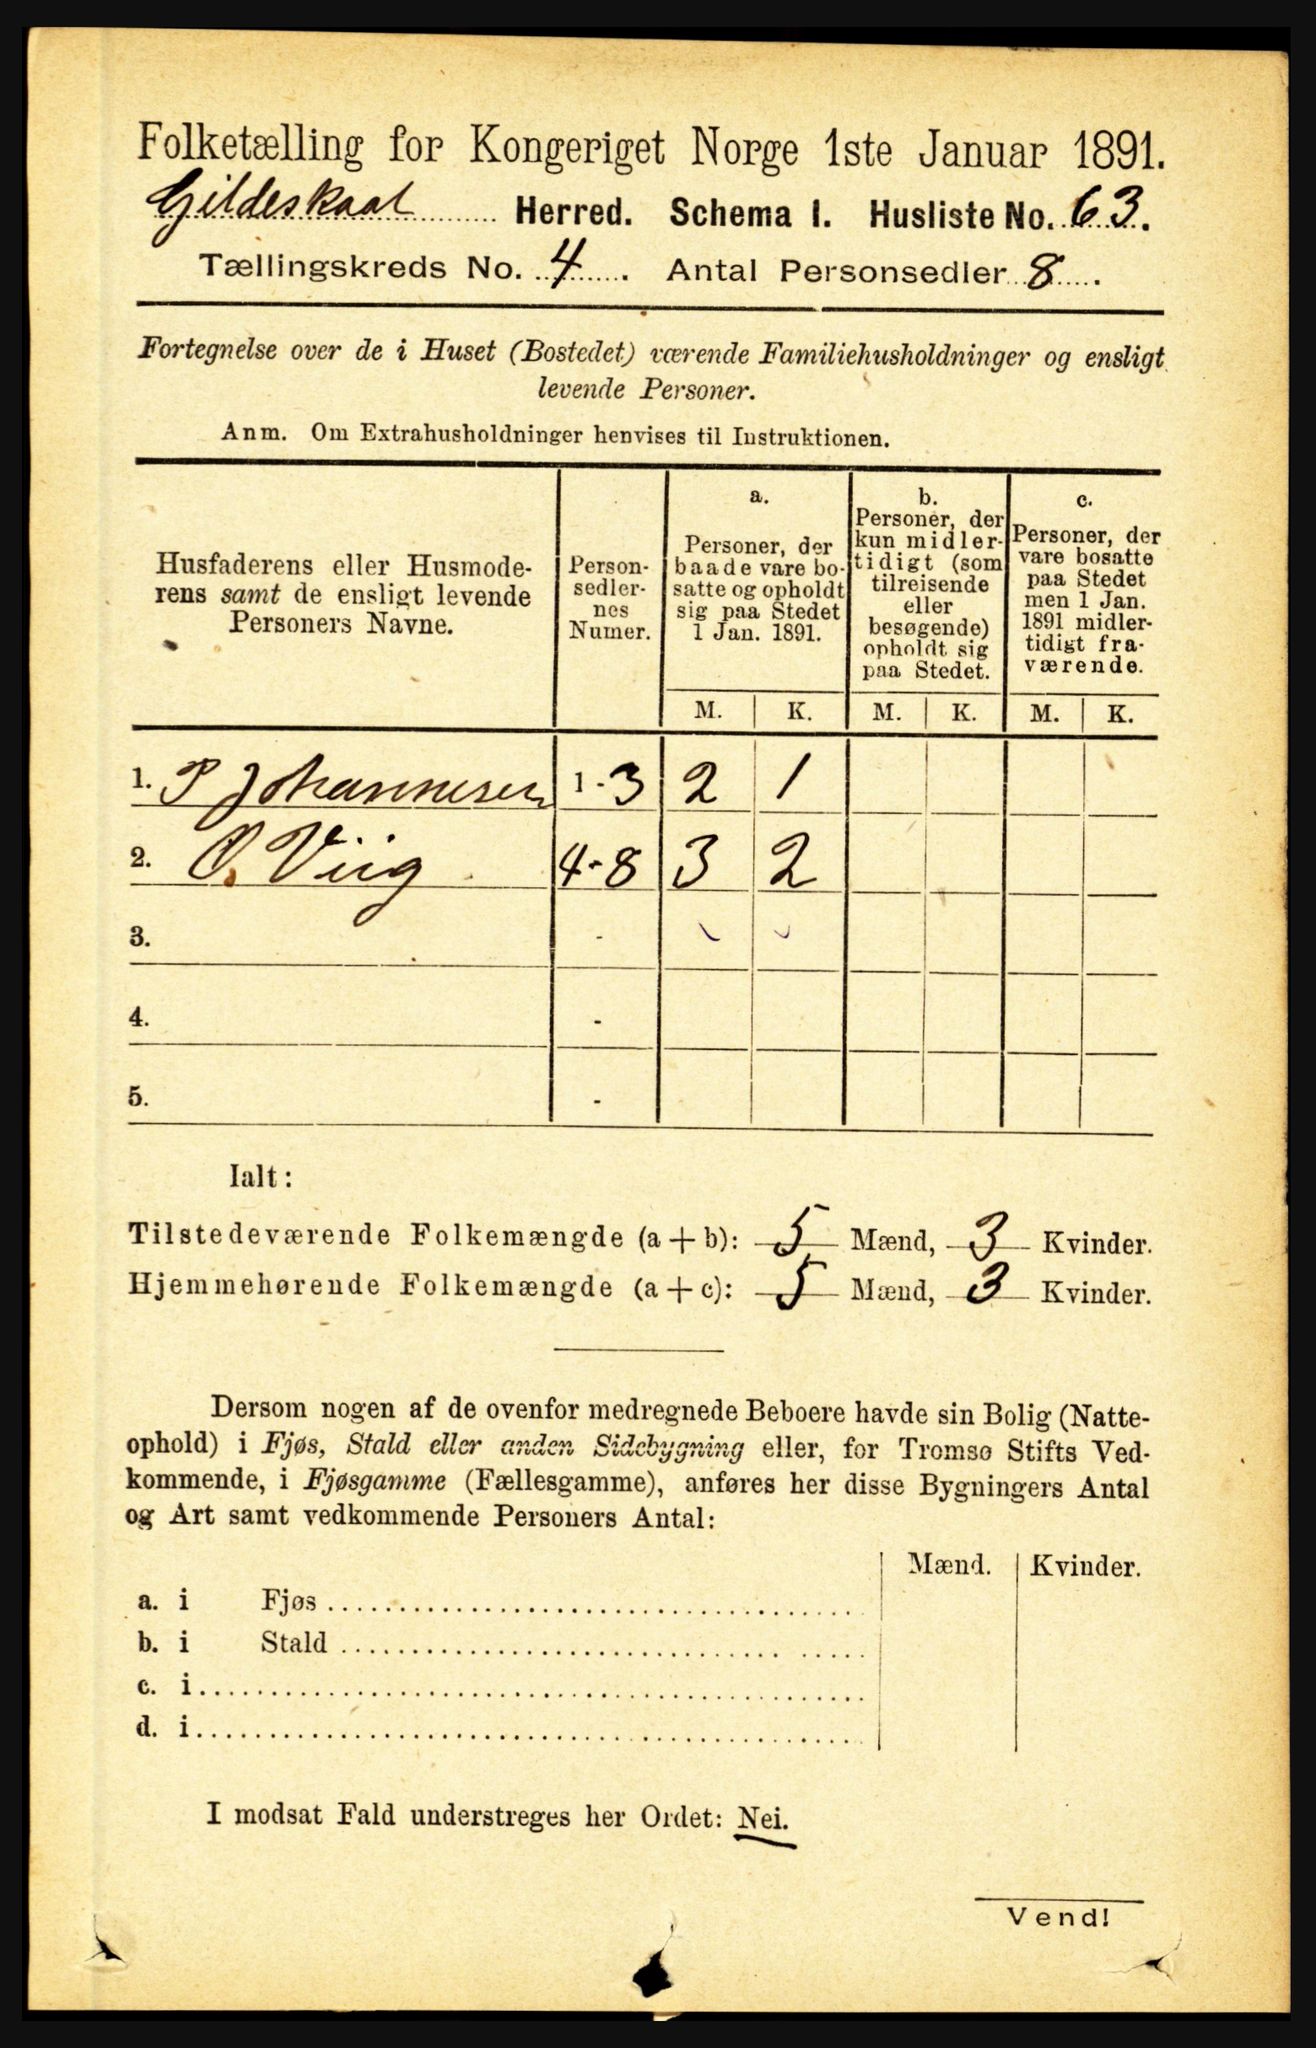 Folketælling for Kongeriget Norge 1ste Januar 1891.
Gildeskaal Herred. Schema I. Husliste No. 63.
Tællingskreds No. 4. Antal Personsedler 8.
Fortegnelse over de i Huset (Bostedet) værende Familiehusholdninger og ensligt
levende Personer.
Anm. Om Extrahusholdninger henvises til Instruktionen.
Husfaderens eller Husmode-
rens samt de ensligt levende
Personers Navne.
Person-
sedler-
nes
Numer.
a.
Personer, der
baade vare bo-
satte og opholdt
sig paa Stedet
1 Jan. 1891.
b.
Personer, der
kun midler-
tidigt (som
tilreisende
eller
besøgende)
opholdt sig
paa Stedet.
c.
Personer, der
vare bosatte
paa Stedet
men 1 Jan.
1891 midler-
tidigt fra-
værende.
M. K. M. K. M. K.
1. P Johannesen 1-3 2 1
2. O. Viig 4-8 3 2
3. -
4. -
5. -
Ialt:
Tilstedeværende Folkemængde (a + b): 5 Mænd, 3 Kvinder.
Hjemmehørende Folkemængde (a + c): 5 Mænd, 3 Kvinder.
Dersom nogen af de ovenfor medregnede Beboere havde sin Bolig (Natte-
ophold) i Fjøs, Stald eller anden Sidebygning eller, for Tromsø Stifts Ved-
kommende, i Fjøsgamme (Fællesgamme), anføres her disse Bygningers Antal
og Art samt vedkommende Personers Antal:
Mænd. Kvinder.
a. i Fjøs
b. i Stald
c. i
d. i
I modsat Fald understreges her Ordet: Nei.
Vend!